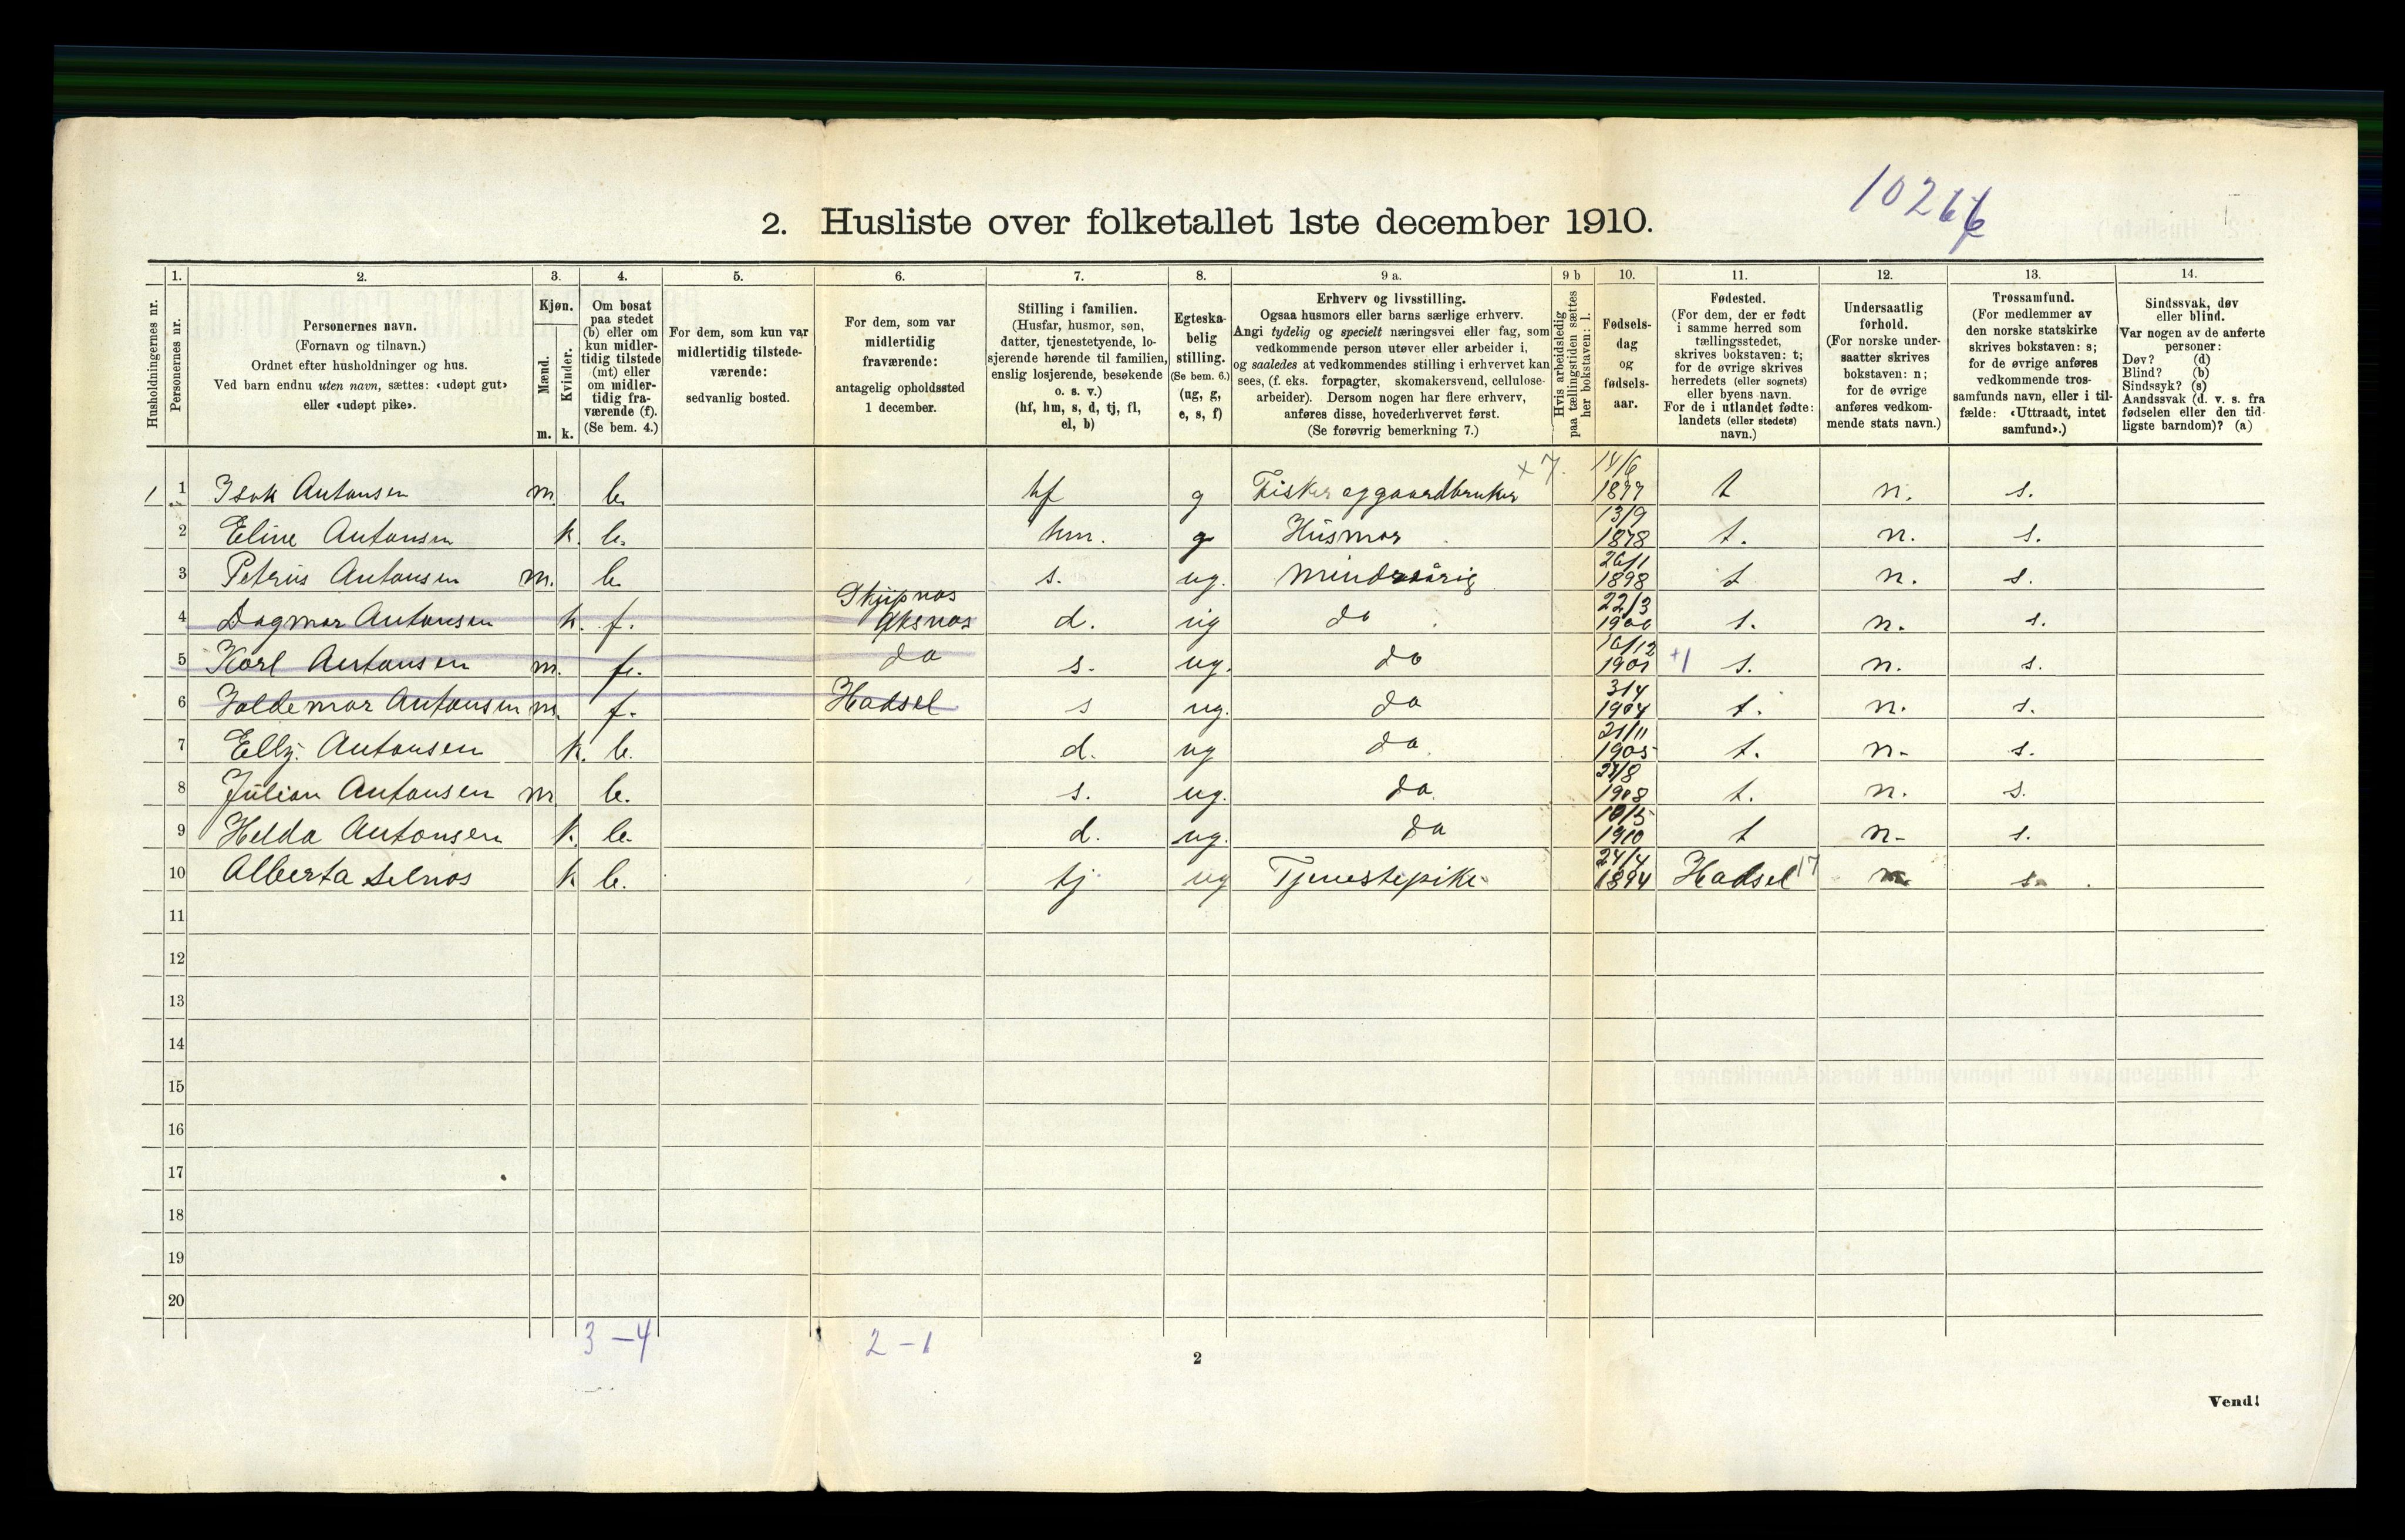 10266
2. Husliste over folketallet 1ste december 1910.
Husholdningernes nr.
1.
Personernes nr.
2.
Personernes navn.
(Fornavn og tilnavn.)
Ordnet efter husholdninger og hus.
Ved barn endnu uten navn, sættes: «udøpt gut»
eller «udøpt pike».
3.
Kjøn.
Mænd.
Kvinder.
m. k.
4.
Om bosat
paa stedet
(b) eller om
kun midler-
tidig tilstede
(mt) eller
om midler-
tidig fra-
værende (f).
(Se bem. 4.)
5.
For dem, som kun var
midlertidig tilstede-
værende:
sedvanlig bosted.
6.
For dem, som var
midlertidig
fraværende:
antagelig opholdssted
1 december.
7.
Stilling i familien.
(Husfar, husmor, søn,
datter, tjenestetyende, lo-
sjerende hørende til familien,
enslig losjerende, besøkende
o. s. v.)
(hf, hm, s, d, tj, fl,
el, b)
8.
Egteska-
belig
stilling.
(Se bem. 6.)
(ug, g,
e, s, f)
9 a.
Erhverv og livsstilling.
Ogsaa husmors eller barns særlige erhverv.
Angi tydelig og specielt næringsvei eller fag, som
vedkommende person utøver eller arbeider i,
og saaledes at vedkommendes stilling i erhvervet kan
sees, (f. eks. forpagter, skomakersvend, cellulose-
arbeider). Dersom nogen har flere erhverv,
anføres disse, hovederhvervet først.
(Se forøvrig bemerkning 7.)
9 b
Hvis arbeidsledig
paa tællingstiden sættes
her bokstaven: l.
10.
Fødsels-
dag
og
fødsels-
aar.
11.
Fødested.
(For dem, der er født
i samme herred som
tællingsstedet,
skrives bokstaven: t;
for de øvrige skrives
herredets (eller sognets)
eller byens navn.
For de i utlandet fødte:
landets (eller stedets)
navn.)
12.
Undersaatlig
forhold.
(For norske under-
saatter skrives
bokstaven: n;
for de øvrige
anføres vedkom-
mende stats navn.)
13.
Trossamfund.
(For medlemmer av
den norske statskirke
skrives bokstaven: s;
for de øvrige anføres
vedkommende tros-
samfunds navn, eller i til-
fælde: «Uttraadt, intet
samfund».)
14.
Sindssvak, døv
eller blind.
Var nogen av de anførte
personer:
Døv? (d)
Blind? (b)
Sindssyk? (s)
Aandssvak (d. v. s. fra
fødselen eller den tid-
ligste barndom)? (a)
1 1 Isak Antonsen m. b. hf g Fisker og gaardbruker x 7. 14/6 1877 t n. s.
2 Eline Antonsen k. b. hm. g Husmor 13/9 1878 t. n. s.
3 Petrus Antonsen m. b. s. ug. Mindreårig 26/1 1898 t n. s.
4 Dagmar Antonsen k. f. Skjipnas Øksnas d. ug do 22/3 1900 t. n. s.
5 Karl Antonsen m. f. do s. ug. do 16/12 1901 +1 s. n. s.
6 Valdemar Antonsen m. f. Hadsel s ug. do 3/4 1904 t. n. s.
7 Elly. Antonsen k. b. d. ug do 21/11 1905 t. n. s.
8 Julian Antonsen m b. s. ug. do 27/8 1908 t. n. s.
9 Helda Antonsen k. b. d. ug. do 10/5 1910 t n. s.
10 Alberta Selnos k b. tj ug Tjenestepike 24/4 1894 Hadsel 17 n s.
11
12
13
14
15
16
17
18
19
20
3 - 4 2 - 1
2
Vend!